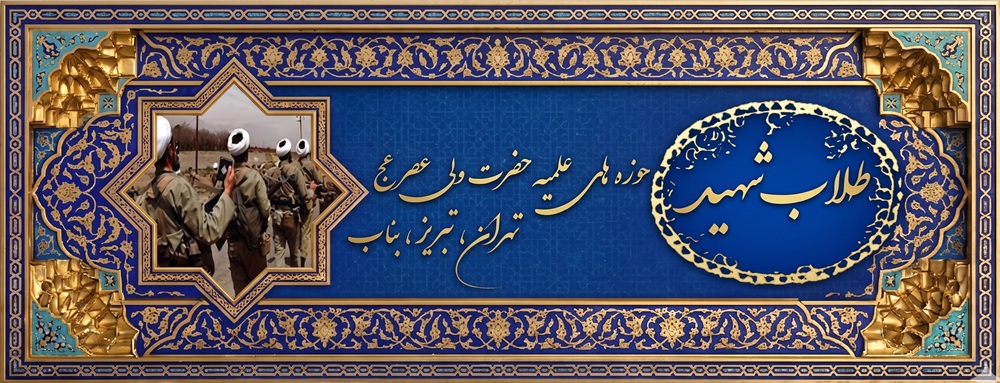 طلاب شهید
حوزه های علمیه حضرت ولی عصر عج
تهران، تبریز، بناب